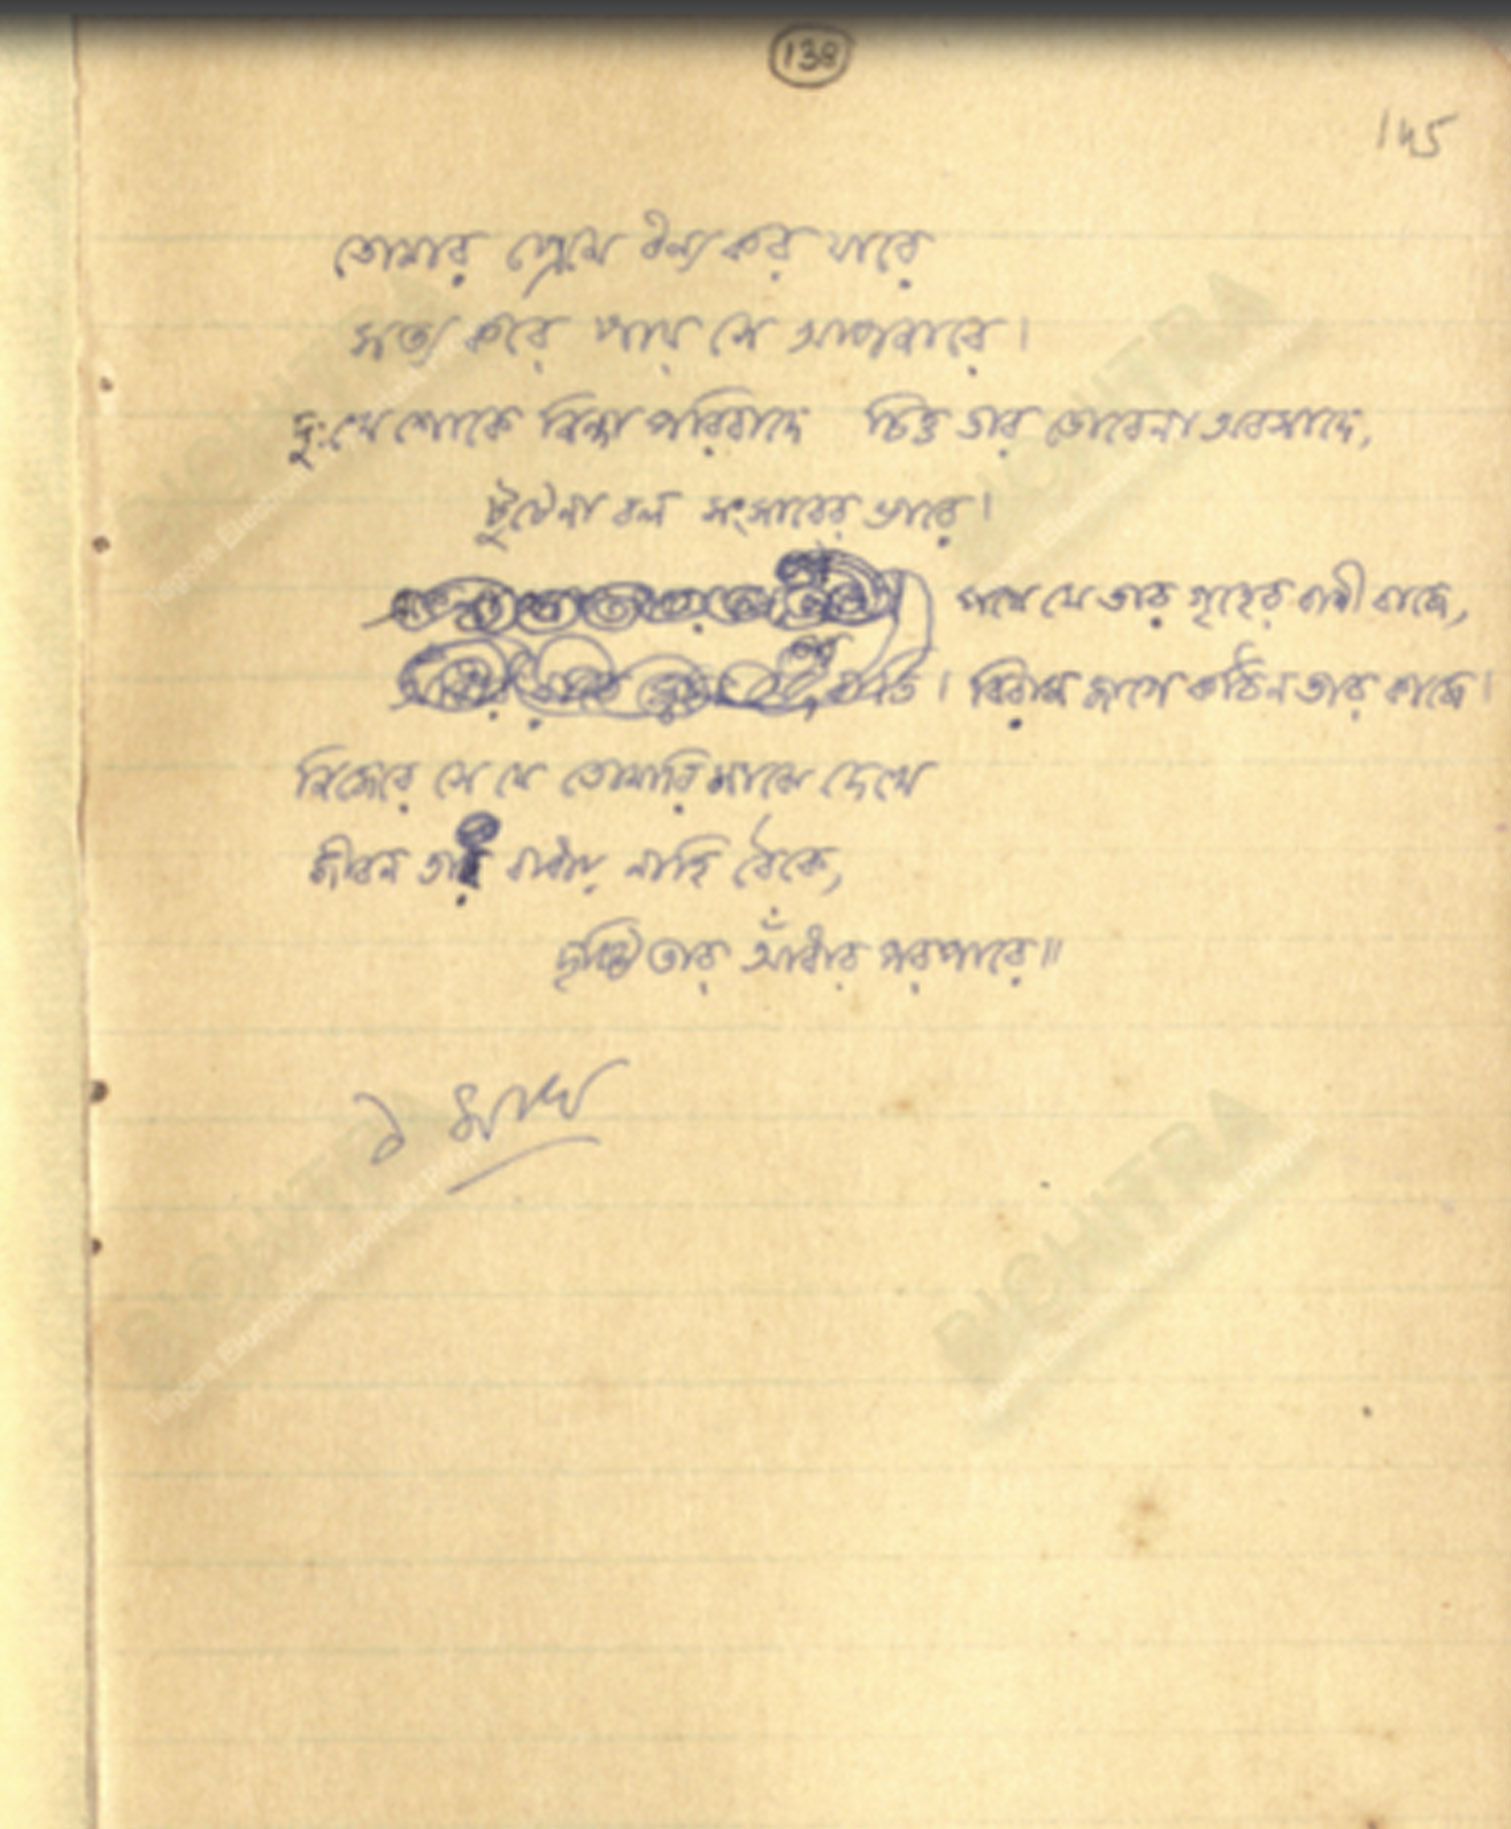 138
145
তোমার প্রেমে ধন্য কর যারে
সত্য করে পায় সে আপনারে।
দুঃখে শোকে নিন্দা পরিবাদে চিত্ত তার ডোবে না অবসাদে,
টুটে না বল সংসারের ভারে।
পথে যে তার গৃহের বাণী বাজে,
বিরাম জাগে কঠিন তার কাজে।
নিজেরে সে যে তোমারি মাঝে দেখে
জীবন তার বাধায় নাহি ঠেকে,
দৃষ্টি তার আঁধার পরপারে॥
১ মাঘ